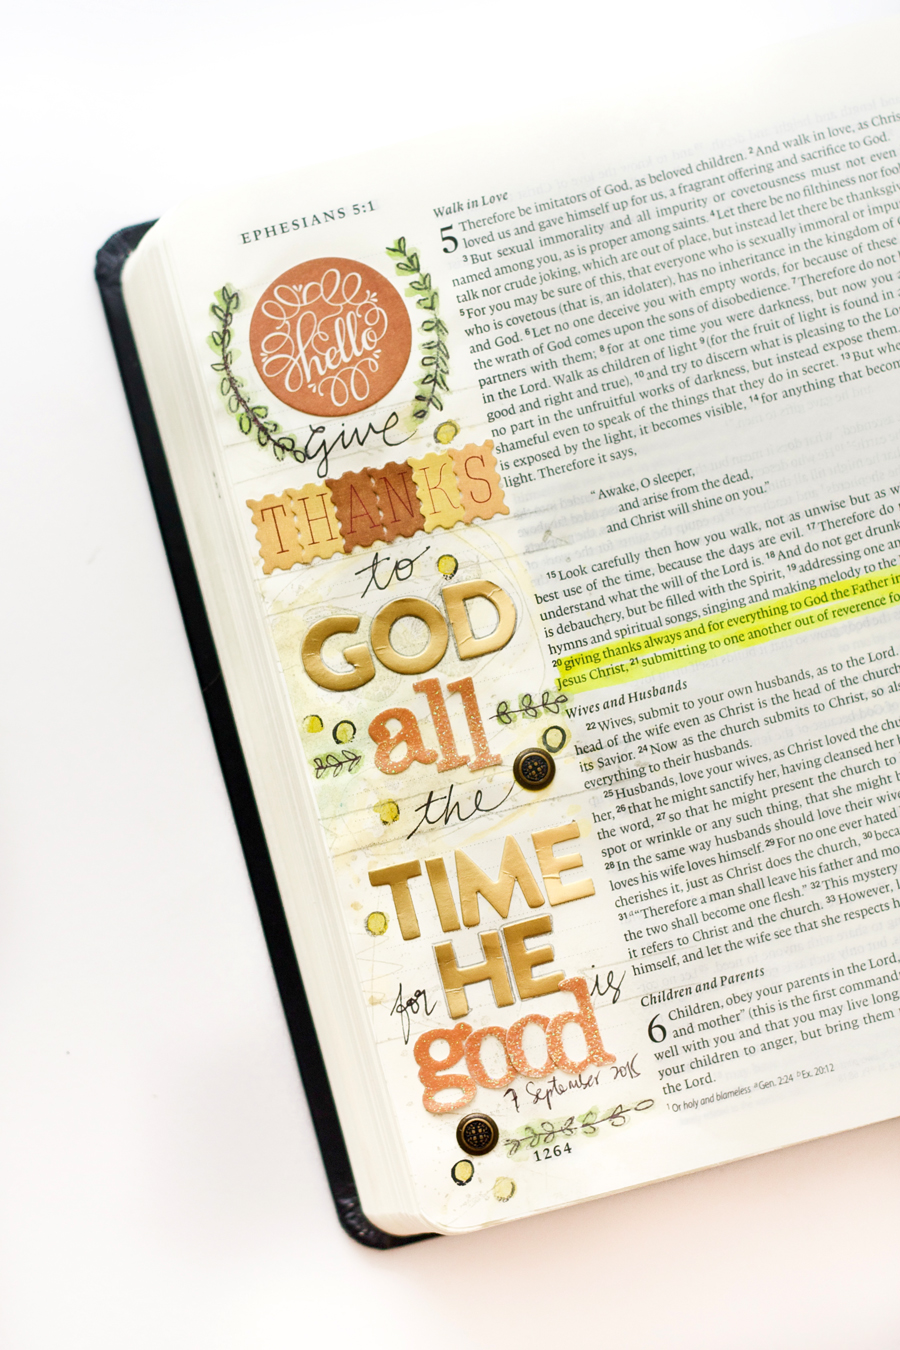 EPHESIANS 5:1
hello
give
THANKS
to
GOD
all
the
TIME
for HE is
good
7 September 2015
1264
Walk in Love
5 Therefore be imitators of God, as beloved children. 2 And walk in love, as Chris
loved us and gave himself up for us, a fragrant offering and sacrifice to God.
3 But sexual immorality and all impurity or covetousness must not even
named among you, as is proper among saints. 4 Let there be no filthiness nor fool
talk nor crude joking, which are out of place, but instead let there be thanksgiv
5 For you may be sure of this, that everyone who is sexually immoral or impu
who is covetous (that is, an idolater), has no inheritance in the kingdom of
and God. 6 Let no one deceive you with empty words, for because of these
the wrath of God comes upon the sons of disobedience. 7 Therefore do not
partners with them; 8 for at one time you were darkness, but now you a
in the Lord. Walk as children of light 9 (for the fruit of light is found in
good and right and true), 10 and try to discern what is pleasing to the Lo
no part in the unfruitful works of darkness, but instead expose them.
shameful even to speak of the things that they do in secret. 13 But whe
is exposed by the light, it becomes visible, 14 for anything that becom
light. Therefore it says,
“Awake, O sleeper,
and arise from the dead,
and Christ will shine on you.”
15 Look carefully then how you walk, not as unwise but as w
best use of the time, because the days are evil. 17 Therefore do
understand what the will of the Lord is. 18 And do not get drunk
is debauchery, but be filled with the Spirit, 19 addressing one an
hymns and spiritual songs, singing and making melody to the
20 giving thanks always and for everything to God the Father in
Jesus Christ, 21 submitting to one another out of reverence fo
Wives and Husbands
22 Wives, submit to your own husbands, as to the Lord.
head of the wife even as Christ is the head of the church
its Savior. 24 Now as the church submits to Christ, so al
everything to their husbands.
25 Husbands, love your wives, as Christ loved the chu
her, 26 that he might sanctify her, having cleansed her
the word, 27 so that he might present the church to
spot or wrinkle or any such thing, that she might b
28 In the same way husbands should love their wive
loves his wife loves himself. 29 For no one ever hated
cherishes it, just as Christ does the church, 30 beca
31 a “Therefore a man shall leave his father and mo
the two shall become one flesh.” 32 This mystery
it refers to Christ and the church. 33 However, l
himself, and let the wife see that she respects h
Children and Parents
6 Children, obey your parents in the Lord,
and mother” (this is the first command
well with you and that you may live long
your children to anger, but bring them
the Lord.
1 Or holy and blameless a Gen. 2:24 b Ex. 20:12